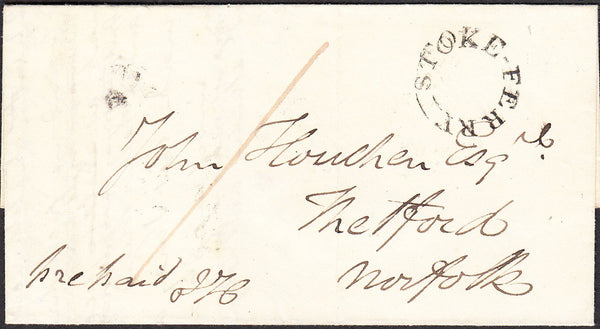 STOKE-FERRY
John Houchen Esqre.
Thetford
Norfolk
prepaid